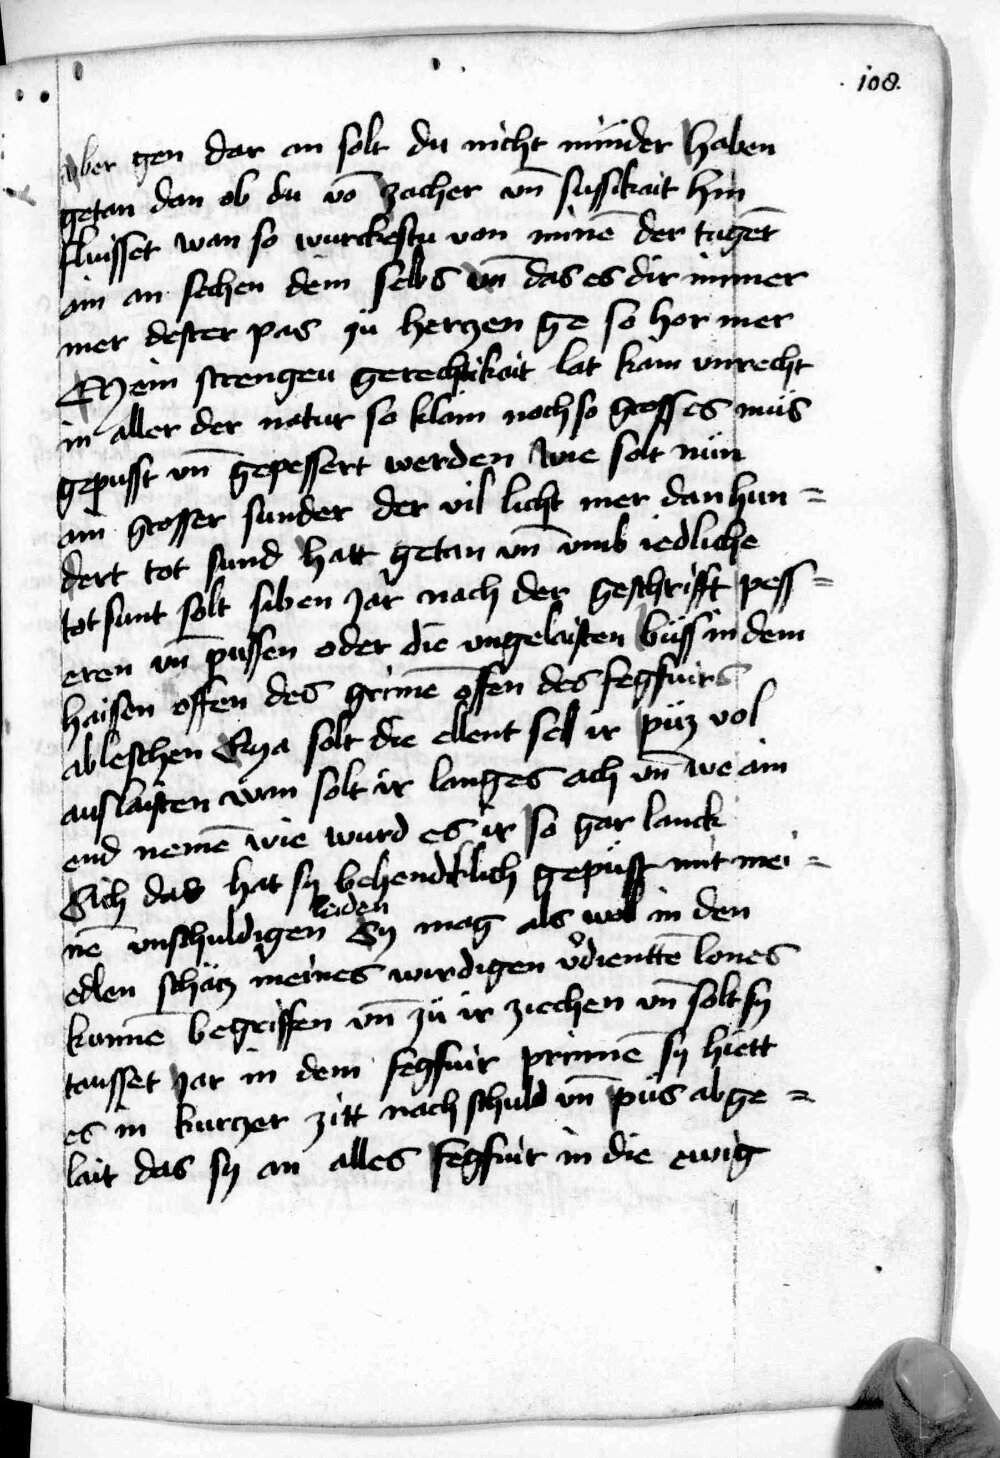 108.
aber gen dar an solt du nicht minder haben
getan dan ob du vō zacher vn̄ sussikait hin
flusset wan so wurckestu von minē der tugēt
ain an sechen dem selbs vn̄ das es dir immer
mer dester pas zü herczen ge so hor mer
Mein strengeu gerechtikait lat kain vnrecht
in aller der natur so klain noch so gross es müs
gepusst vn̄ gepessert werden Wie solt nün
ain grosser sunder der vil licht mer dan hun =
dert tot sund hatt getan vn̄ vmb iedliche
tot sunt solt siben jar nach der geschrifft pess =
eren vn̄ püssen oder die vngelaisten büss in dem
haissen offen des grimē offen des fegfuirs
ableschen Eya solt die ellent sell ir püz vol
auslaisten wan solt ir langes ach vn̄ we ain
end nemē wie wurd es ir so gar lanck
Sich das hat sy behendklich gepüsst mit mei =
nē vnschuldigen leiden Sy mag als wol in den
edlen schätz meines wirdigen v̉dienttē lones
kumē begriffen vn̄ zü ir ziechen vn̄ solt sy
tausset jar in dem fegfuir prinnē sy hiett
es in kurczer zitt nach schuld vn̄ püs abge =
lait das sy an alles fegfuir in die ewig